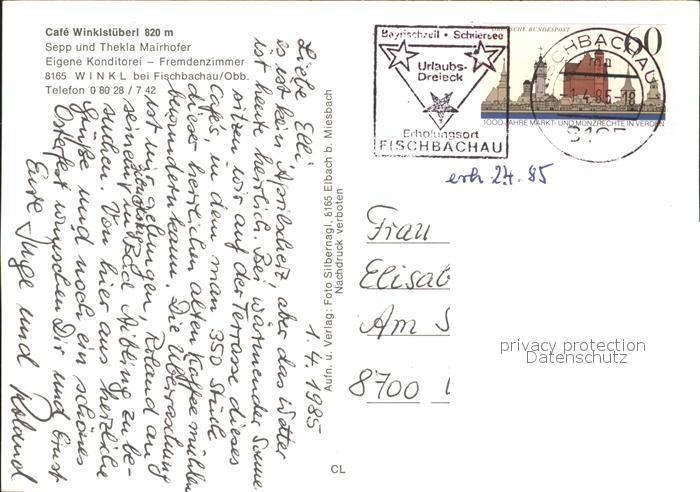 Café Winklstüberl 820 m
Sepp und Thekla Mairhofer
Eigene Konditorei – Fremdenzimmer
8165 WINKL bei Fischbachau/Obb.
Telefon 0 80 28 / 7 42
1.4.1985
Liebe Elli,
es ist kein Aprilscherz, aber das Wetter
ist heute herrlich. Bei wärmender Sonne
sitzen wir auf der Terrasse dieses
Cafés, in dem man 350 Stück
dieser herrlichen alten Kaffeemühlen
bewundern kann. Die Überraschung
ist mir gelungen, Roland an
seinem in Bad Aibling zu be-
suchen. Von hier aus herzliche
Grüße und noch ein schönes
Osterfest wünschen Dir und Ernst
Eure Inge und Roland
Aufn. u. Verlag: Foto Silbernagl, 8165 Elbach b. Miesbach
Nachdruck verboten
CL
Bayrischzell · Schliersee
Urlaubs-
Dreieck
Erholungsort
FISCHBACHAU
DEUTSCHE BUNDESPOST
60
1000 JAHRE MARKT- UND MÜNZRECHTE IN VERDEN
FISCHBACHAU
mn
1.4.85-18
8165
erh. 2.4.85
Frau
Elisab
Am S
8700
privacy protection
Datenschutz